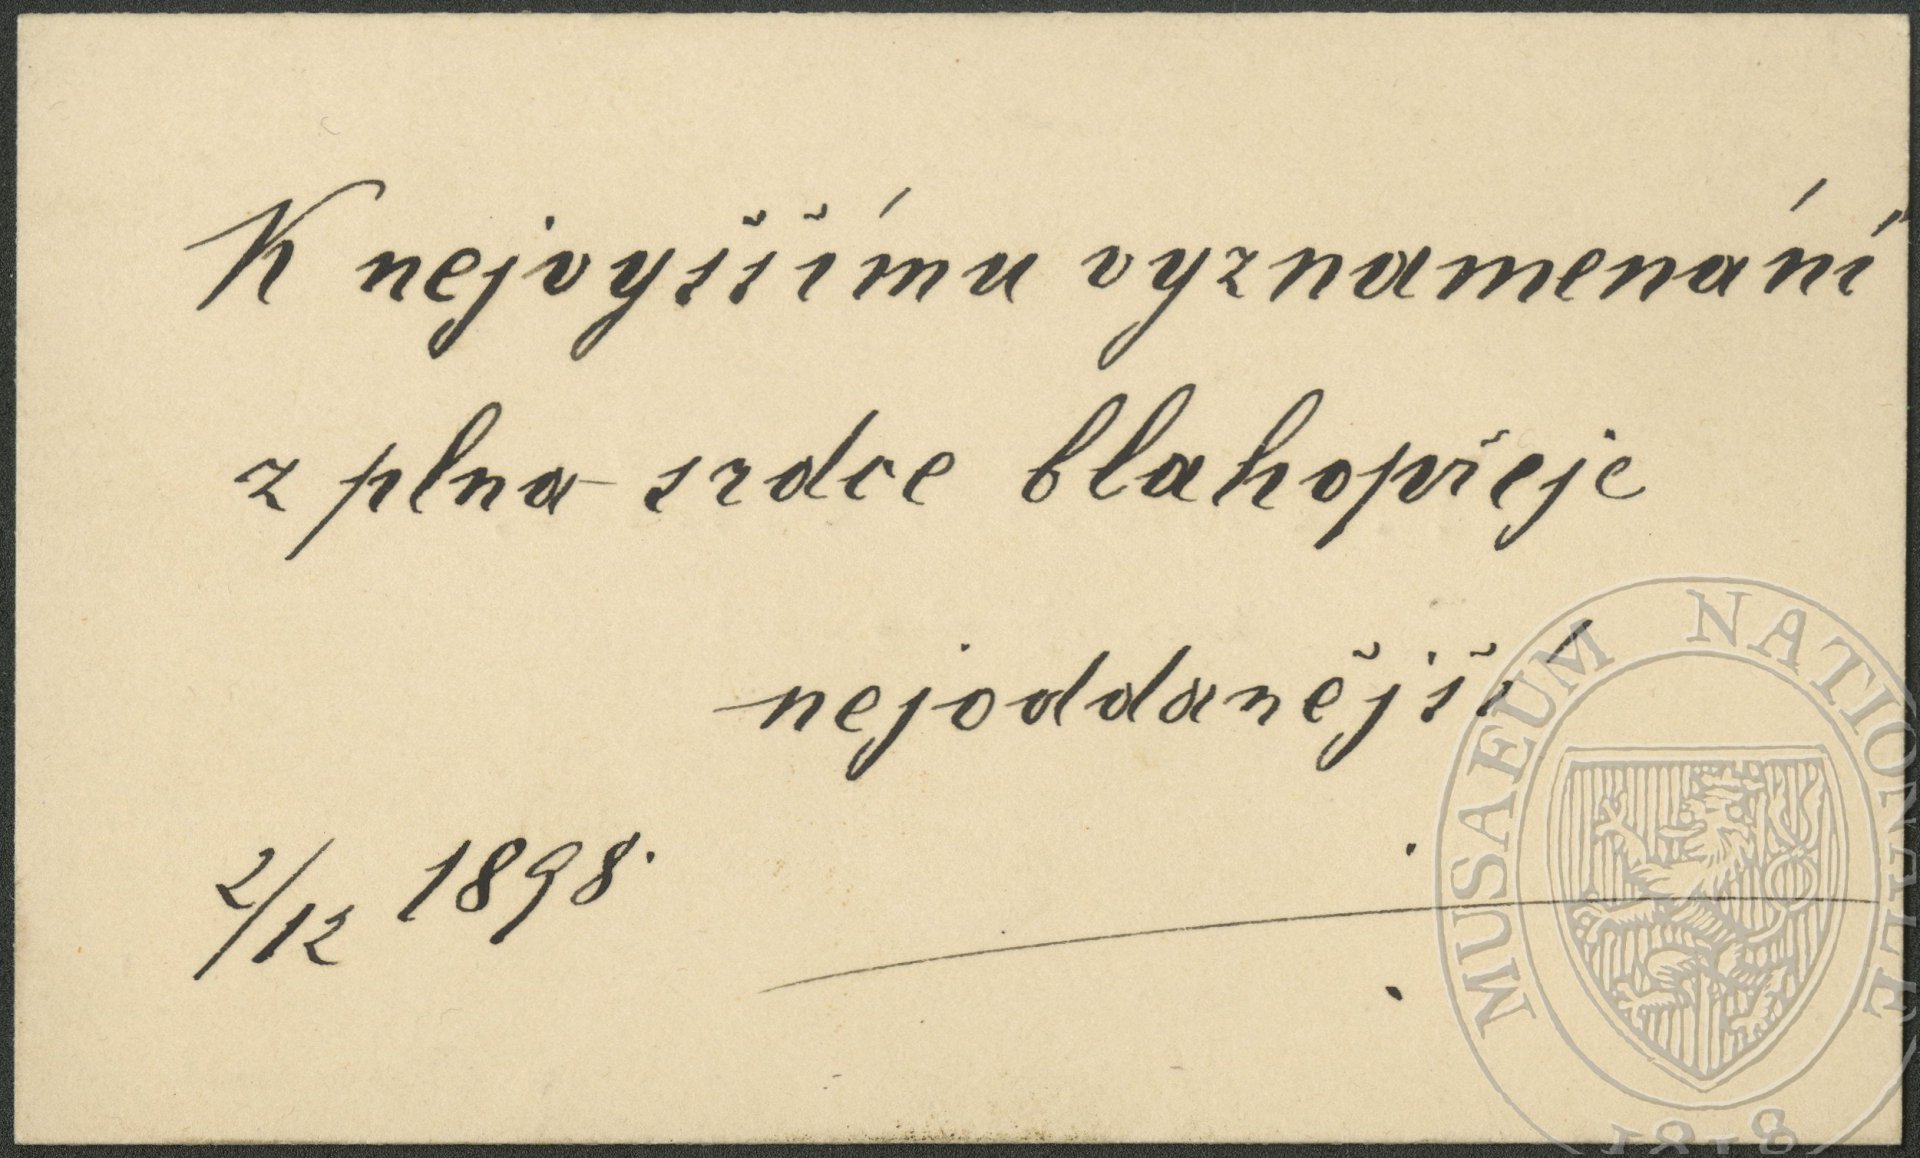 K nejvyššímu vyznamenání
z plna srdce blahopřeje
nejoddanější
2/12 1898.
MUSAEUM NATIONALE
1818